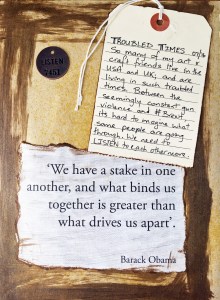 LISTEN
TROUBLED TIMES
So many of my art &
craft friends live in the
USA and UK, and are
living in such troubled
times. Between the
seemingly constant gun
violence and #Brexit
its hard to imagine what
some people are going
through. We need to
LISTEN to each other more.
‘We have a stake in one
another, and what binds us
together is greater than
what drives us apart’.
Barack Obama